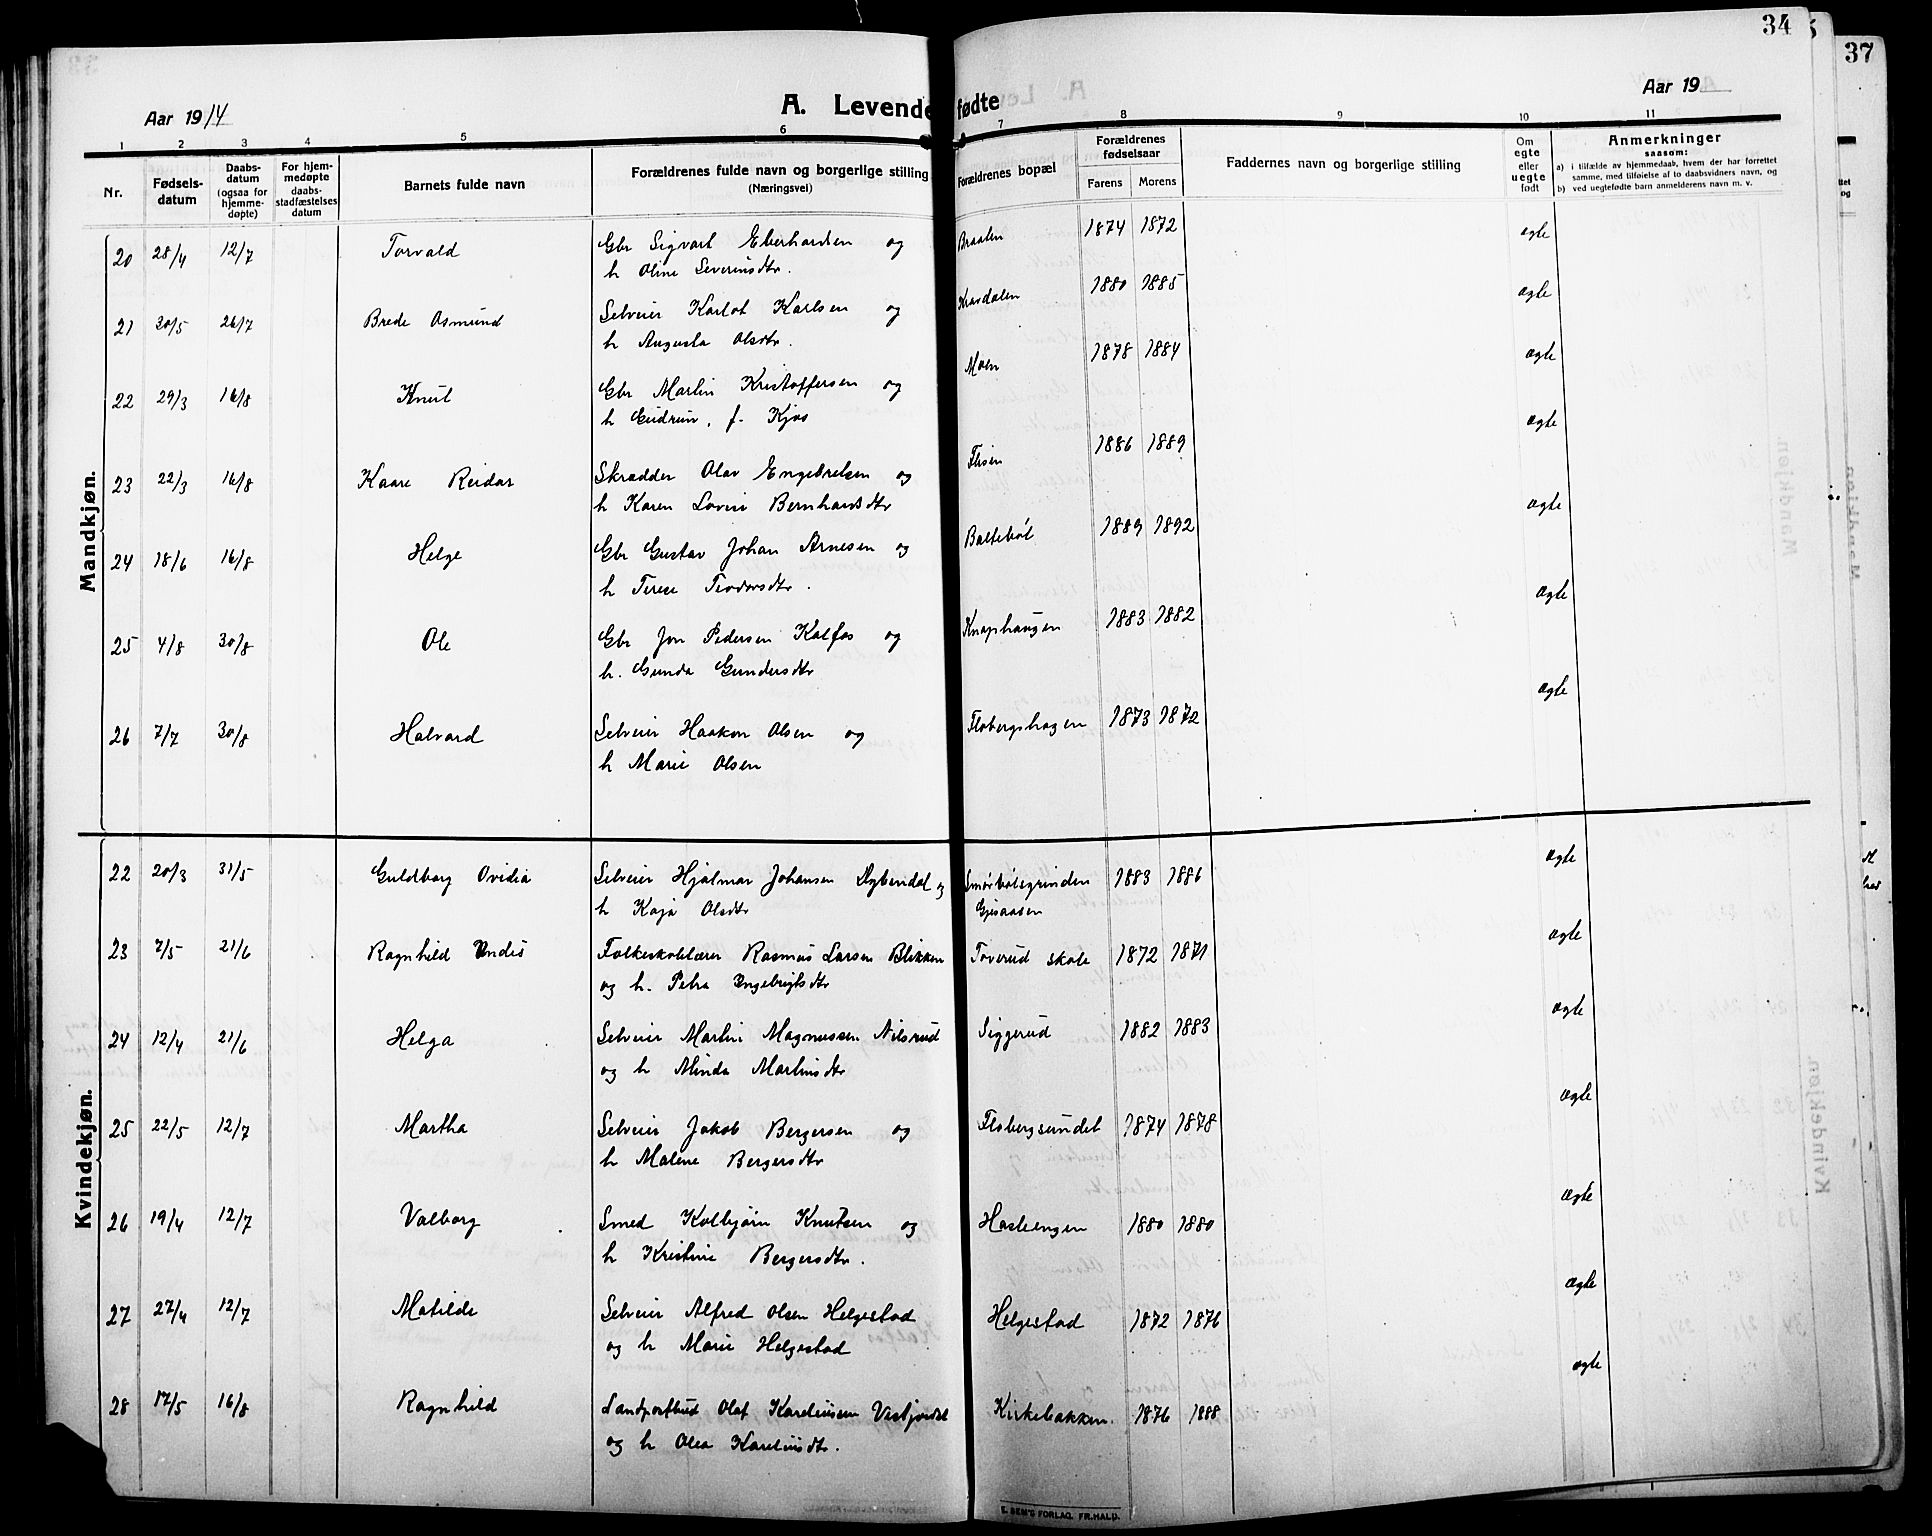 34
37
Aar 1914
A. Levende fødte
Aar 19
1 2 3 4 5 6 7 8 9 10 11
Nr.
Fødsels-
datum
Daabs-
datum
(ogsaa for
hjemme-
døpte)
For hjem-
medøpte
daabs-
stadfæstelses
datum
Barnets fulde navn
Forældrenes fulde navn og borgerlige stilling
(Næringsvei)
Forældrenes bopæl
Forældrenes
fødselsaar
Farens Morens
Faddernes navn og borgerlige stilling
Om
egte
eller
uegte
født
Anmerkninger
saasom:
a) i tilfælde av hjemmedaab, hvem der har forrettet
samme, med tilføielse af to daabsvidners navn, og
b) ved uegtefødte barn anmelderens navn m. v.
Mandkjøn.
20 28/4 12/7 Torvald Gbr Sigvart Eberhardsen og Braaten 1874 1872 ægte
h Oline Severinsdtr.
21 30/5 26/7 Brede Osmund Selveier Karlot Karlsen og 1880 1885 ægte
h Augusta Olsdtr.
22 29/3 16/8 Knut Gbr Martin Kristoffersen og Moen 1878 1884 ægte
h Gudrun, f. Kjos
23 22/3 16/8 Kaare Reidar Skrædder Olav Engebretsen og Flisen 1886 1889 ægte
h Karen Lovise Bernhardsdtr
24 18/6 16/8 Helge Gbr Gustav Johan Arnesen og Baltebøl 1889 1892 ægte
h Terese Teodorsdtr.
25 4/8 30/8 Ole Gbr Jon Pedersen Kalfos og Knaphaugen 1883 1882 ægte
h. Gunda Gundersdtr
26 7/7 30/8 Halvard Selveier Haakon Olsen og Flobergshagen 1873 1872 ægte
h Marie Olsen
Kvindekjøn.
22 20/3 31/5 Guldborg Ovidia Selveier Hjalmar Johansen Dybendal og Smørbølsgrinden 1883 1886 ægte
h Kaja Olsdtr Gjesaasen
23 7/5 21/6 Ragnhild Undis Folkeskolelærer Rasmus Larsen Blikken Toverud skole 1872 1871 ægte
og h. Petra Engebrigtsdtr
24 12/4 21/6 Helga Selveier Martin Magnussen Nilsrud Siggerud 1882 1883 ægte
og h Minda Martinsdtr
25 22/5 12/7 Martha Selveier Jakob Bergersen og Flobergsundet 1874 1878 ægte
h Malene Bergersdtr
26 19/4 12/7 Valborg Smed Kolbjørn Knutsen og Hasleengen 1880 1880 ægte
h Kristine Bergersdtr.
27 27/4 12/7 Matilde Selveier Alfred Olsen Helgestad Helgestad 1872 1876 ægte
og h Marie Helgestad
28 17/5 16/8 Ragnhild Landpostbud Olaf Kareliussen Vestjordet Kirkebakken. 1876 1888 ægte
og h Olea Kareliusdtr.
E. SEM'S FORLAG, FR.HALD.